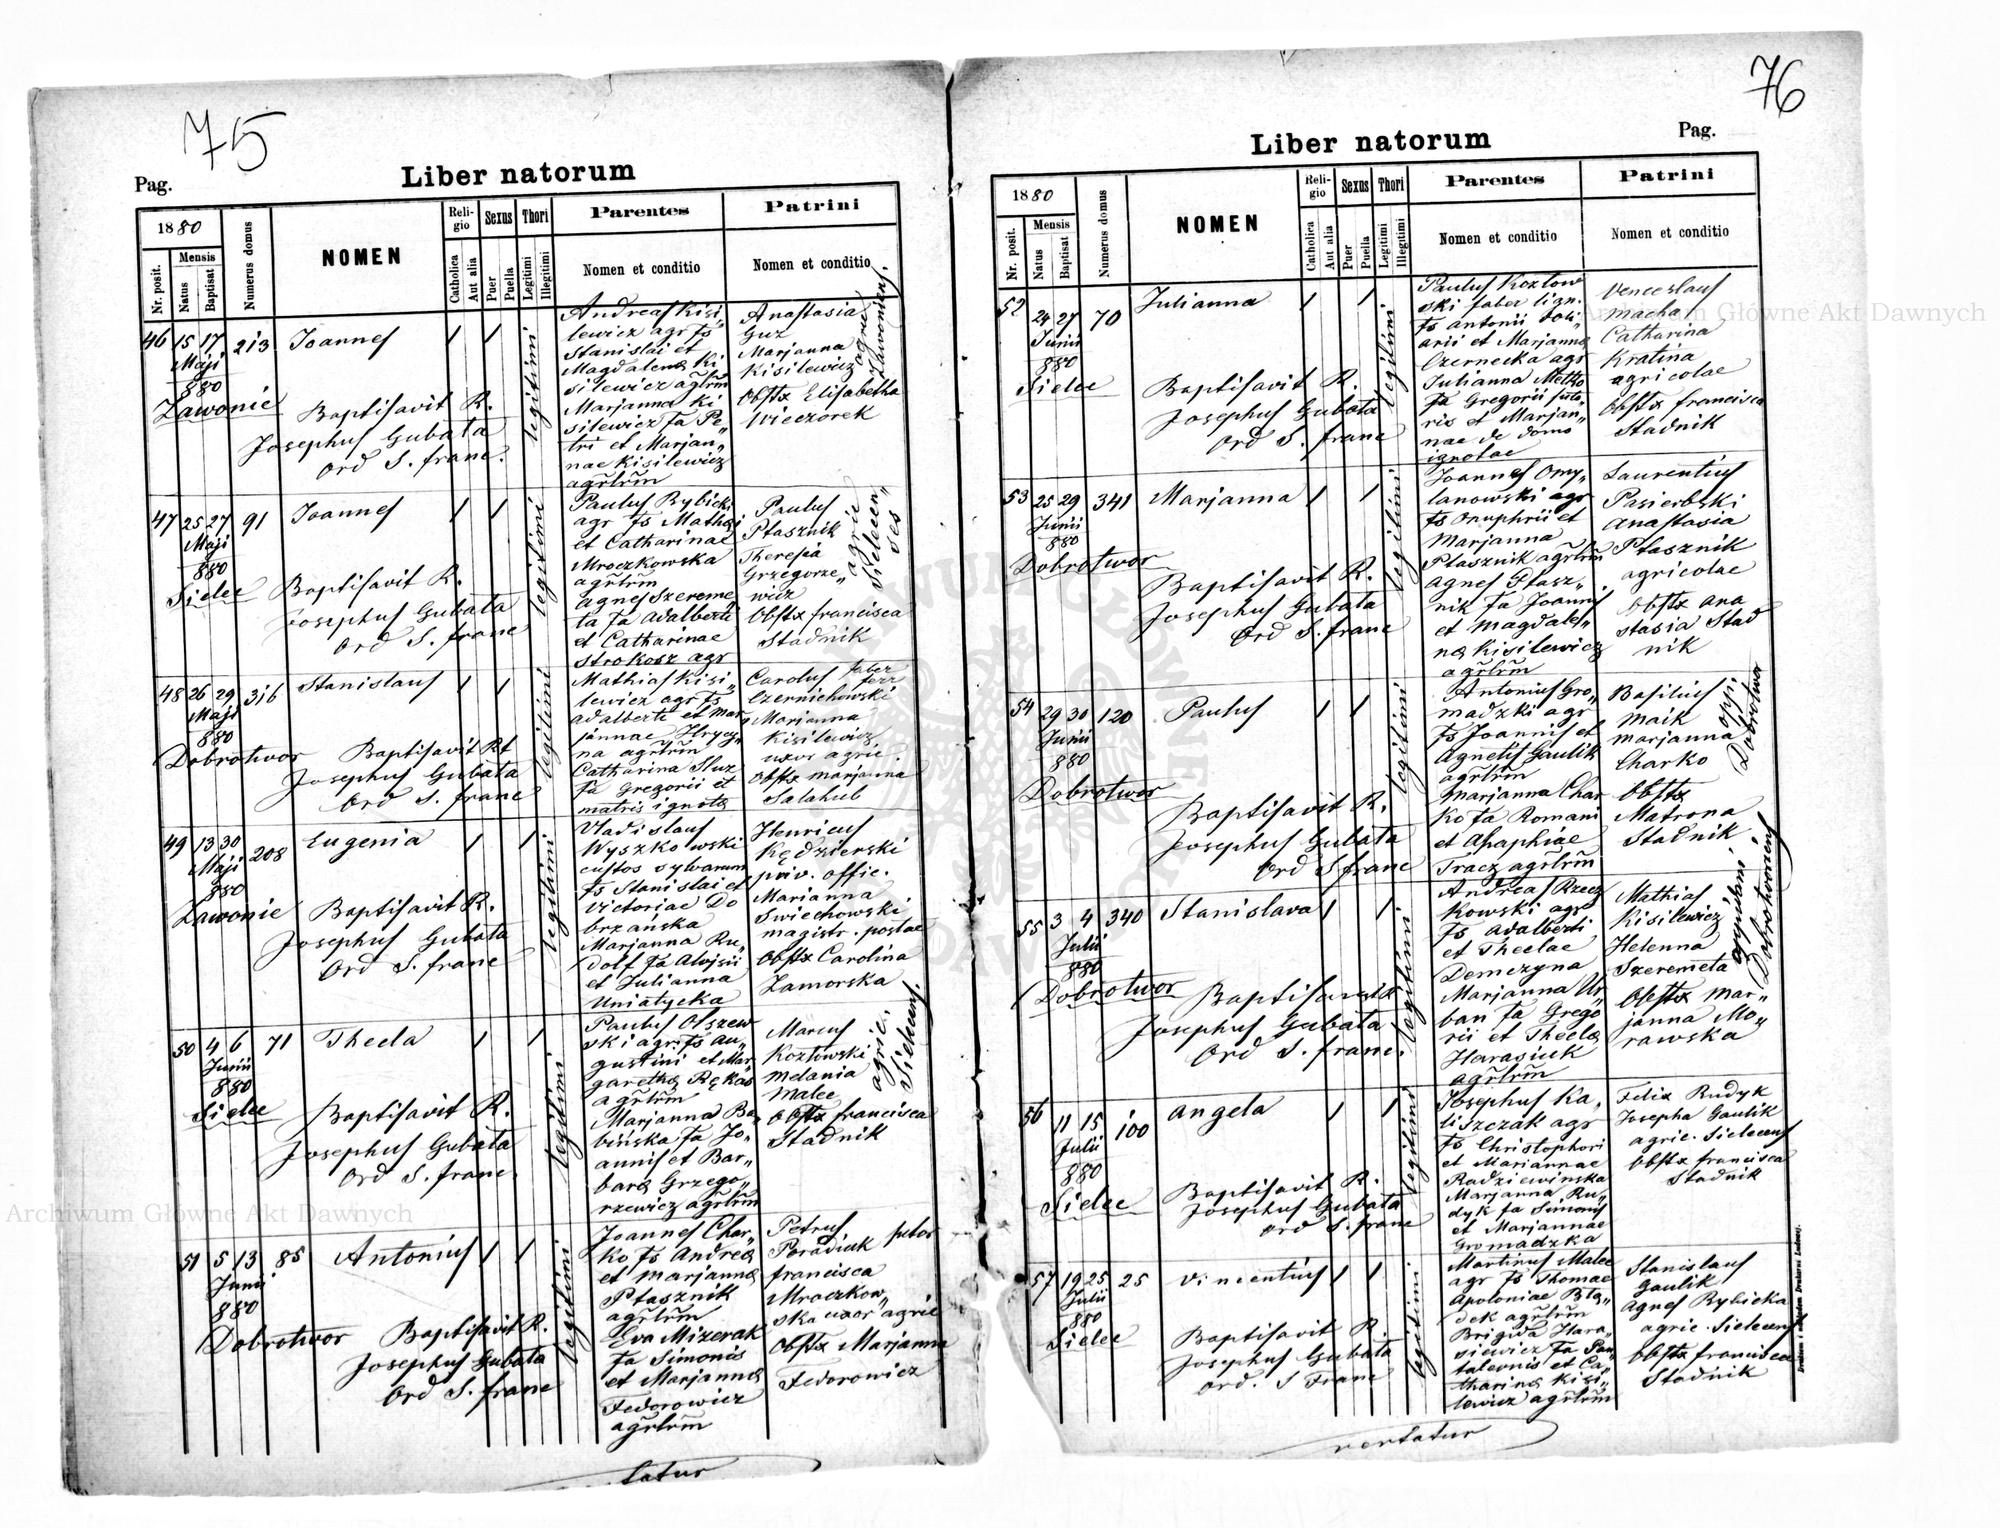 75
Pag.
Liber natorum
1880
Nr. posit.
Mensis
Natus
Baptisat
Numerus domus
NOMEN
Religio
Catholica
Aut alia
Sexus
Puer
Puella
Thori
Legitimi
Illegitimi
Parentes
Nomen et conditio
Patrini
Nomen et conditio
46 15 17 213 Joannes 1 1
Maji
880
Zawonie
Baptisavit R.
Josephus Gubata
Ord S. franc.
legitimi
Andreas Kisi„
lewicz agr fs
Stanislai et
Magdalena Ki
silewicz agrlrm
Marjanna Ki
silewicz fa Pe„
tri et Marjan„
nae Kisilewicz
agrlrm
Anastasia
Guz
Marjanna
Kisilewicz
Obsttx Elisabetha
Wieczorek
agric
Zawonien.
47 25 27 91 Joannes 1 1
Maji
880
Sielec
Baptisavit R.
Josephus Gubata
Ord S. franc
legitimi
Paulus Rybicki
agr fs Mathei
et Catharinae
Mroczkowska
agrlrm
agnes Szereme
ta fa Adalberti
et Catharinae
Strokosz agr
Paulus
Ptasznik
Theresia
Grzegorze„
wicz
Obsttx francisca
Stadnik
agric
48 26 29 316 Stanislaus 1 1
Maji
880
Dobrotwor
Baptisavit Rt
Josephus Gubata
Ord S. franc
legitimi
Mathias Kisi„
lewicz agr fs
adalberti et Mar
jannae Hrycy„
na agrlrm
Catharina Sluz
fa Gregorii et
matris ignota
Carolus faber
ferr
Czernichowski
Marjanna
Kisilewicz
uxor agric
Obsttx Marjanna
Salahub
49 13 30 208 Eugenia 1 1
Maji
880
Zawonie
Baptisavit R.
Josephus Gubata
Ord S. franc
legitimi
Vladislaus
Wyszkowski
custos sylvarum
fs Stanislai et
Victoriae Do
brzańska
Marjanna Ru„
dolf fa Alojsii
et Julianna
Uniatycka
Henricus
Kędzierski
priv. offic.
Marianna
Swiechowski
magistr. postae
Obsttx Carolina
Zamorska
50 4 6 71 Thecla 1 1
Junii
880
Sielec
Baptisavit R.
Josephus Gubata
Ord S. franc.
legitimi
Paulus Olszew
ski agr. fs Au„
gustini et Mar
garetha Rękas
agrlrm
Marjanna Ba„
bińska fa Jo„
annis et Bar„
bara Grzego„
rzewicz agrlrm
Marcus
Kozłowski
Melania
Malec
Obsttx francisca
Stadnik
agric.
Sielcens.
51 5 13 85 Antonius 1 1
Junii
880
Dobrotwor
Baptisavit R.
Josephus Gubata
Ord S. franc
legitimi
Joannes Char„
ko fs Andrea
et Marjanna
Ptasznik
agrlrm
Eva Mizerak
fa Simonis
et Marjanna
Fedorowicz
agrlrm
Petrus
Paradiuk sutor
francisca
Mroczkow„
ska uxor agric
Obsttx Marjanna
Fedorowicz
tatur
76
Pag.
Liber natorum
1880
Nr. posit.
Mensis
Natus
Baptisat
Numerus domus
NOMEN
Religio
Catholica
Aut alia
Sexus
Puer
Puella
Thori
Legitimi
Illegitimi
Parentes
Nomen et conditio
Patrini
Nomen et conditio
52 24 27 70 Julianna 1 1
Junii
880
Sielec
Baptisavit R.
Josephus Gubata
Ord S. franc
legitimi
Paulus Kozłow
ski faber lign.
fs antonii
arii et Marjanna
Czernecka agr
Julianna Metko
fa Gregorii suto
ris et Marjan„
nae de domo
ignotae
Venceslaus
Macha
Catharina
Kratina
agricolae
Obsttx francisca
Stadnik
53 25 29 341 Marjanna 1 1
Junii
880
Dobrotwor
Baptisavit R.
Josephus Gubata
Ord S. franc
legitimi
Joannes Omy„
lanowski agr
fs Onuphrii et
Marjanna
Ptasznik agrlrm
agnes Ptasz„
nik fa Joannis
et Magdale„
na Kisilewicz
agrlrm
Laurentius
Pasierbski
Anastasia
Ptasznik
agricolae
Obsttx Ana
stasia Stad
nik
54 29 30 120 Paulus 1 1
Junii
880
Dobrotwor
Baptisavit R.
Josephus Gubata
Ord S franc
legitimi
Antonius Gro„
madzki agr
fs Joannis et
Agnetis Gaulik
agrlrm
Marjanna Char
ko fa Romani
et Apaphiae
Tracz agrlrm
Basilius
Maik
Marjanna
Charko
Obsttx
Matrona
Stadnik
opp.
Dobrotwor
55 3 4 340 Stanislava 1 1
Julii
880
Dobrotwor
Baptisavit R
Josephus Gubata
Ord S. franc.
legitimi
Andreas Rzecz
kowski agr
fs Adalberti
et Theclae
Demczyna
Marjanna Ur„
ban fa Grego
rii et Thecla
Harasiuk
agrlrm
Mathias
Kisilewicz
Helenna
Szeremeta
Obsttx Mar„
janna Mo„
rawska
oppidani
Dobrotworiens
56 11 15 100 Angela 1 1
Julii
880
Sielec
Baptisavit R.
Josephus Gubata
Ord S. franc
legitimi
Josephus Ka„
liszczak agr
fs Christophori
et Mariannae
Radziewinska
Marjanna Ru„
dyk fa Simonis
et Marjannae
Gromadzka
Felix Rudyk
Josepha Gaulik
agric. Sielecens
Obsttx francisca
Stadnik
57 19 25 25 Vincentius 1 1
Julii
880
Sielec
Baptisavit R.
Josephus Gubata
Ord. S Franc
legitimi
Martinus Malec
agr fs Thomae
Apoloniae Bła„
dek agrlrm
Brigida Hara„
siewicz fa Pan
taleonis et Ca„
tharina Kisi„
lewicz agrlrm
Stanislaus
Gaulik
Agnes Rybicka
agric. Sielecens
Obsttx francisca
Stadnik
vertatur
Archiwum Główne Akt Dawnych
Archiwum Główne Akt Dawnych